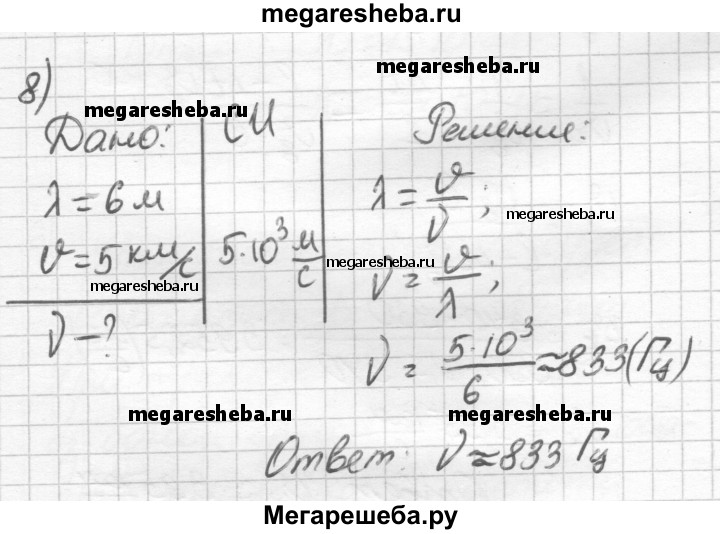 megaresheba.ru
8)
megaresheba.ru
megaresheba.ru
Дано:
СИ
Решение:
λ = 6 м
λ = υ/ν;
megaresheba.ru
υ = 5 км/с
5·10³ м/с
megaresheba.ru
ν = υ/λ;
megaresheba.ru
ν - ?
ν = 5·10³/6 ≈ 833 (Гц)
megaresheba.ru
megaresheba.ru
Ответ: ν ≈ 833 Гц
Мегарешеба.ру